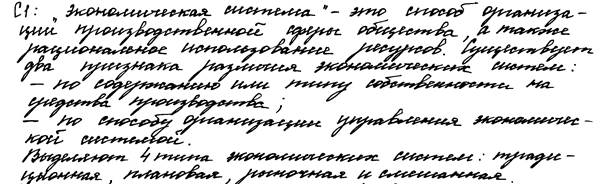 С1: "экономическая система" - это способ организа-
ции производственной сферы общества, а также
рациональное использование ресурсов. Существует
два признака различия экономических систем:
- по содержанию или типу собственности на
средства производства;
- по способу организации управления экономичес-
кой системой.
Выделяют 4 типа экономических систем: тради-
ционная, плановая, рыночная и смешанная.